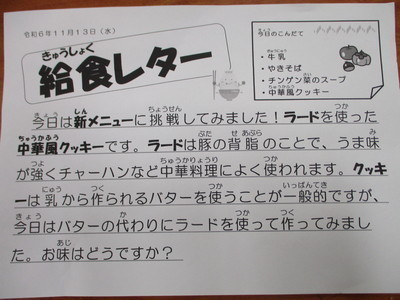 令和6年11月13日(水)
きゅうしょく
給食レター
今日のこんだて
・牛乳
・やきそば
・チンゲン菜のスープ
・中華風クッキー
今日は新メニューに挑戦してみました！ラードを使った
中華風クッキーです。ラードは豚の背脂のことで、うま味
が強くチャーハンなど中華料理によく使われます。クッキ
ーは乳から作られるバターを使うことが一般的ですが、
今日はバターの代わりにラードを使って作ってみまし
た。お味はどうですか？